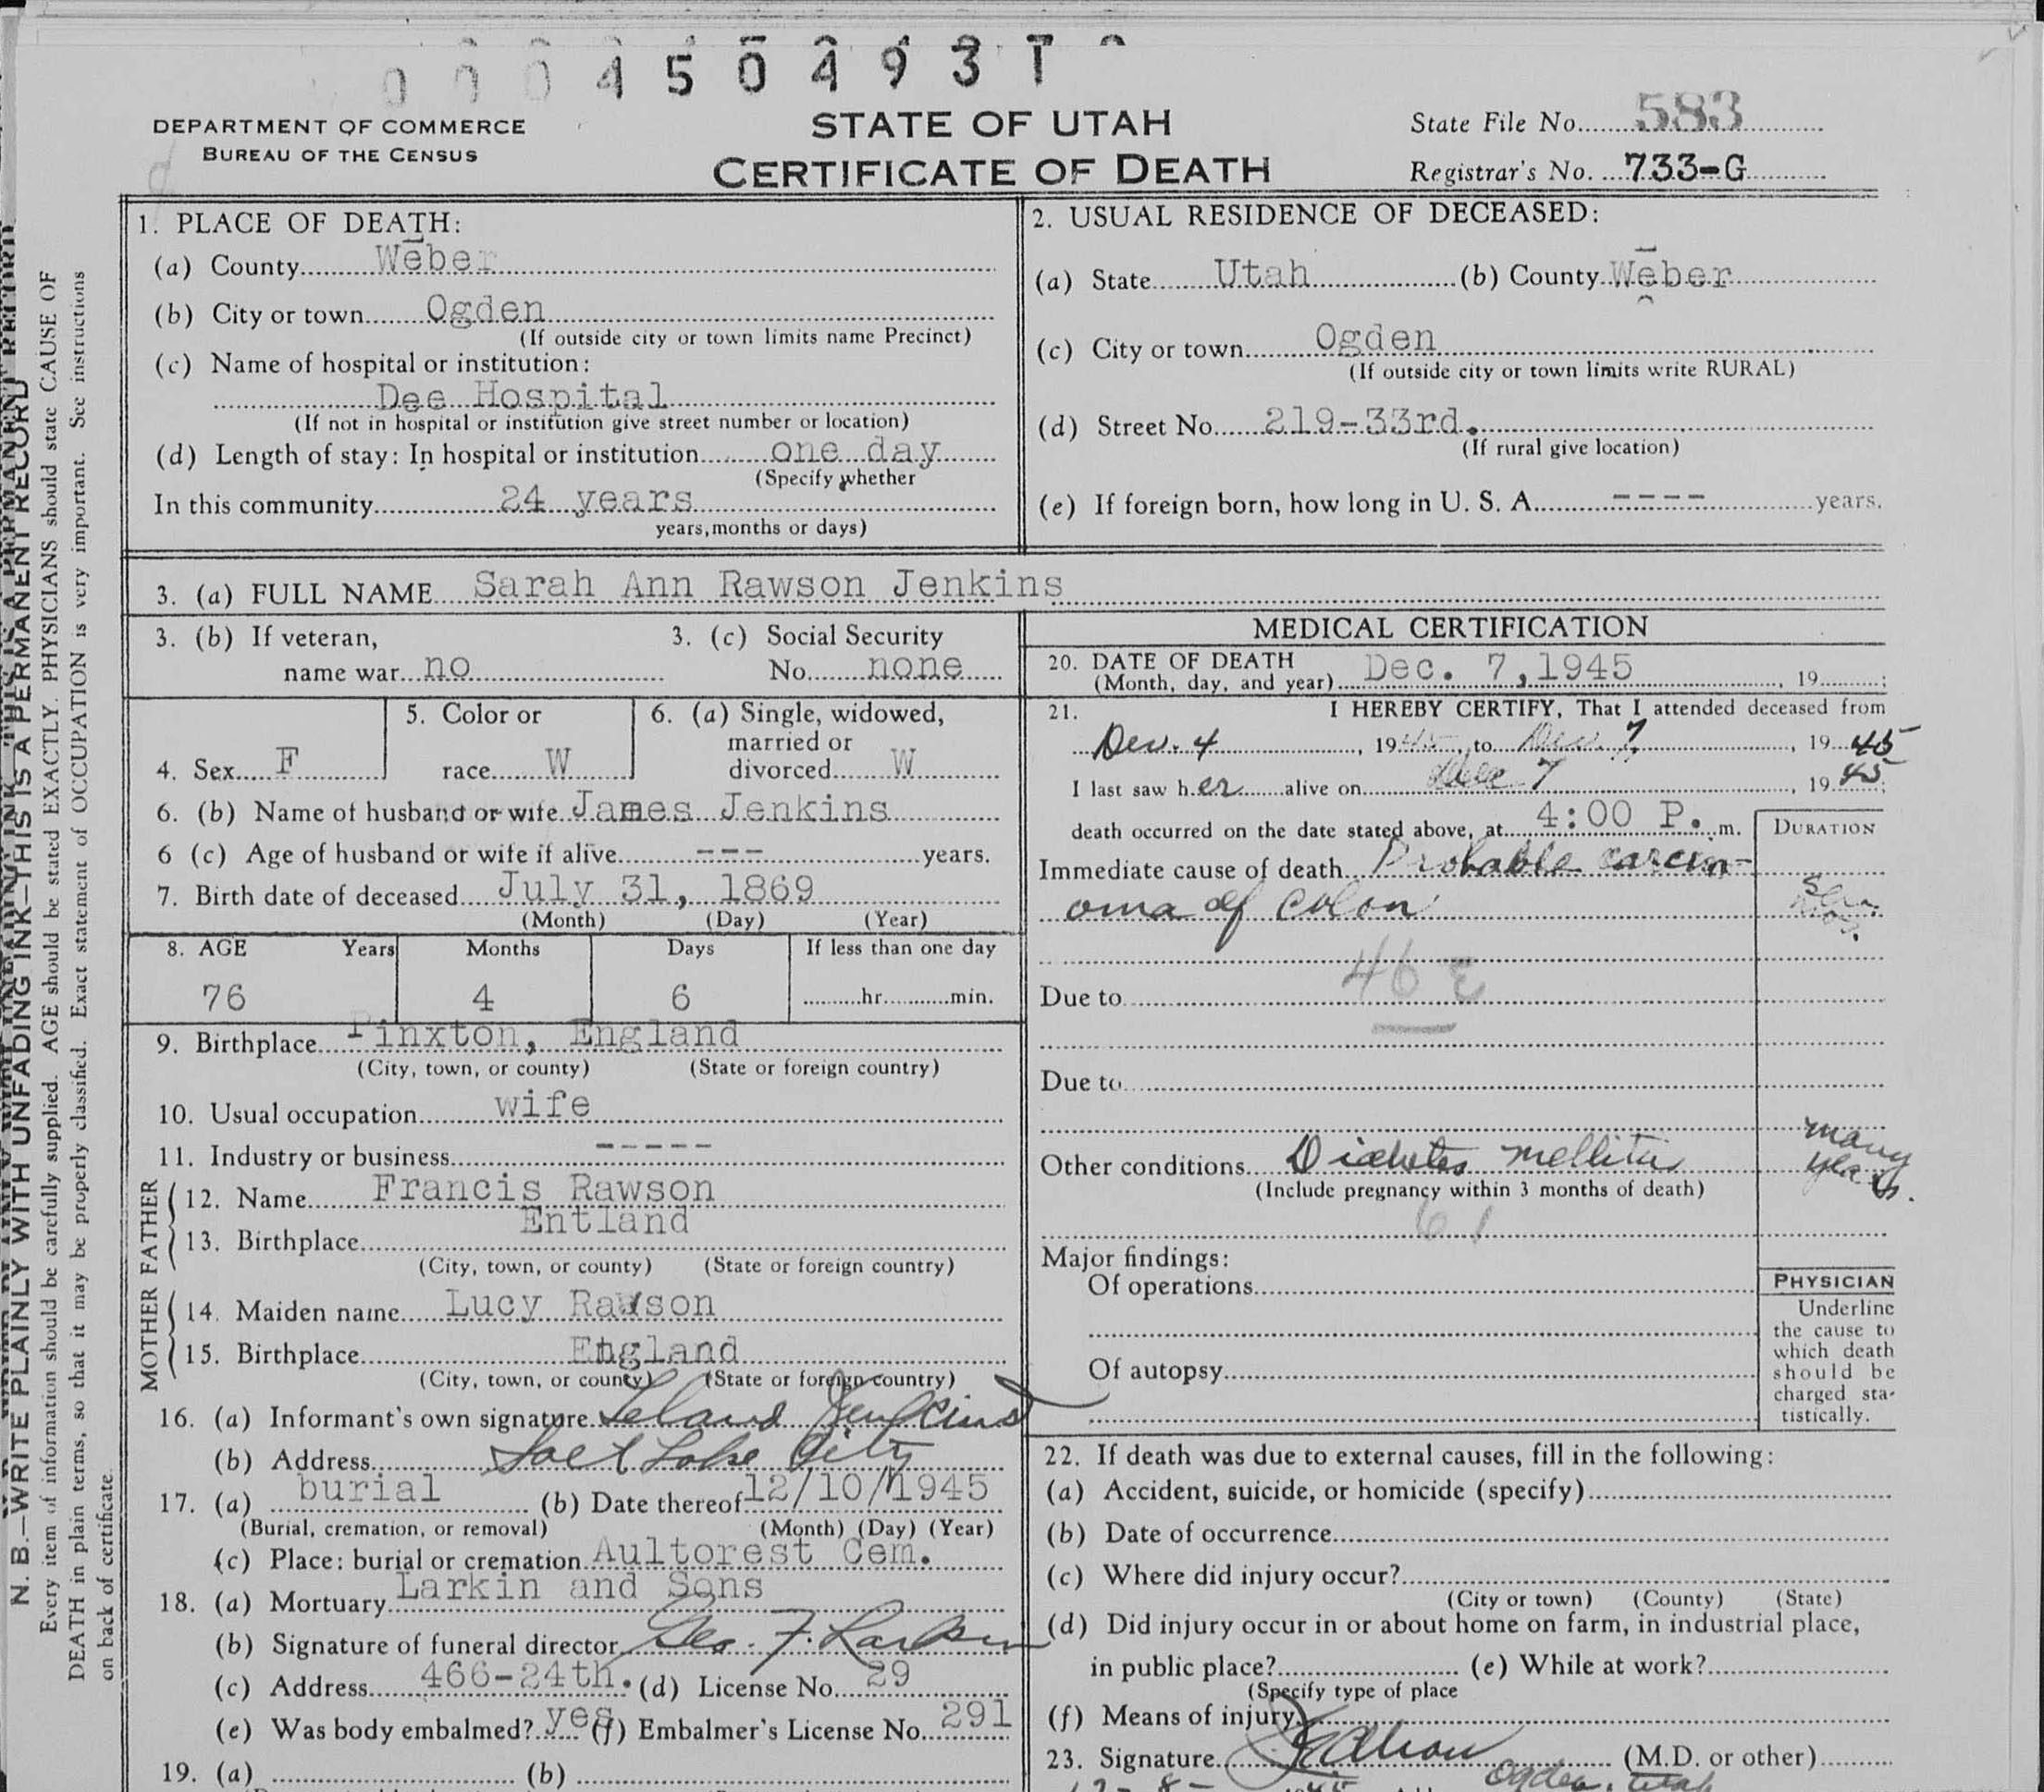 0 0 0 4 5 0 4 9 3 1
DEPARTMENT OF COMMERCE
BUREAU OF THE CENSUS
STATE OF UTAH
CERTIFICATE OF DEATH
State File No. 583
Registrar's No. 733-G
N. B.—WRITE PLAINLY WITH UNFADING INK—THIS IS A PERMANENT RECORD
Every item of information should be carefully supplied. AGE should be stated EXACTLY. PHYSICIANS should state CAUSE OF
DEATH in plain terms, so that it may be properly classified. Exact statement of OCCUPATION is very important. See instructions
on back of certificate.
1. PLACE OF DEATH:
(a) County Weber
(b) City or town Ogden
(If outside city or town limits name Precinct)
(c) Name of hospital or institution:
Dee Hospital
(If not in hospital or institution give street number or location)
(d) Length of stay: In hospital or institution one day
(Specify whether
In this community 24 years
years, months or days)
2. USUAL RESIDENCE OF DECEASED:
(a) State Utah (b) County Weber
(c) City or town Ogden
(If outside city or town limits write RURAL)
(d) Street No. 219-33rd.
(If rural give location)
(e) If foreign born, how long in U. S. A. ---- years.
3. (a) FULL NAME Sarah Ann Rawson Jenkins
3. (b) If veteran,
name war no
3. (c) Social Security
No. none
4. Sex F
5. Color or
race W
6. (a) Single, widowed,
married or
divorced W
6. (b) Name of husband or wife James Jenkins
6 (c) Age of husband or wife if alive --- years.
7. Birth date of deceased July 31, 1869
(Month) (Day) (Year)
8. AGE Years Months Days If less than one day
76 4 6 hr. min.
9. Birthplace Pinxton, England
(City, town, or county) (State or foreign country)
10. Usual occupation wife
11. Industry or business -----
FATHER
12. Name Francis Rawson
13. Birthplace Entland
(City, town, or county) (State or foreign country)
MOTHER
14. Maiden name Lucy Rawson
15. Birthplace England
(City, town, or county) (State or foreign country)
16. (a) Informant's own signature Leland Jenkins
(b) Address Salt Lake City
17. (a) burial (b) Date thereof 12/10/1945
(Burial, cremation, or removal) (Month) (Day) (Year)
(c) Place: burial or cremation Aultorest Cem.
18. (a) Mortuary Larkin and Sons
(b) Signature of funeral director Geo. F. Larkin
(c) Address 466-24th. (d) License No. 29
(e) Was body embalmed? yes (f) Embalmer's License No. 291
19. (a) (b)
MEDICAL CERTIFICATION
20. DATE OF DEATH Dec. 7, 1945
(Month, day, and year) , 19 ;
21. I HEREBY CERTIFY, That I attended deceased from
Dec. 4, 1945, to Dec. 7, 1945
I last saw her alive on Dec 7, 1945;
death occurred on the date stated above, at 4:00 P. m.
DURATION
Immediate cause of death Probable carcin-
oma of colon
46 E
Due to
Due to
Other conditions Diabetes mellitus many years.
(Include pregnancy within 3 months of death)
61
Major findings:
Of operations
Of autopsy
PHYSICIAN
Underline
the cause to
which death
should be
charged sta-
tistically.
22. If death was due to external causes, fill in the following:
(a) Accident, suicide, or homicide (specify)
(b) Date of occurrence
(c) Where did injury occur?
(City or town) (County) (State)
(d) Did injury occur in or about home on farm, in industrial place,
in public place? (e) While at work?
(Specify type of place
(f) Means of injury
23. Signature (M.D. or other)
Ogden, Utah